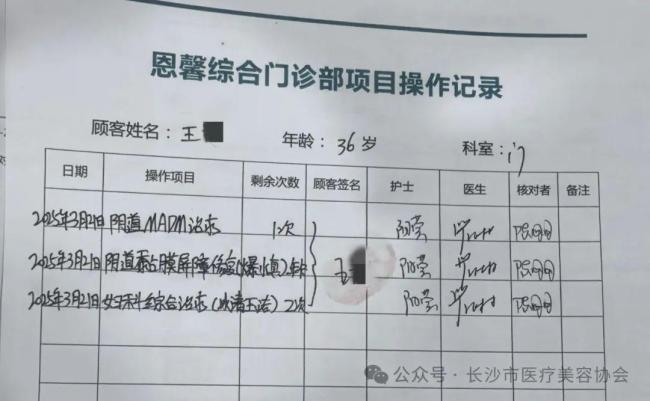 恩馨综合门诊部项目操作记录
顾客姓名：王 年龄：36岁 科室：门
日期 操作项目 剩余次数 顾客签名 护士 医生 核对者 备注
2025年3月21日 阴道MADM治疗 1次 阳莹
2025年3月21日 阴道黏膜屏障修复 王 阳莹
2025年3月21日 妇科综合治疗(冰清玉洁) 2次 阳莹
公众号·长沙市医疗美容协会